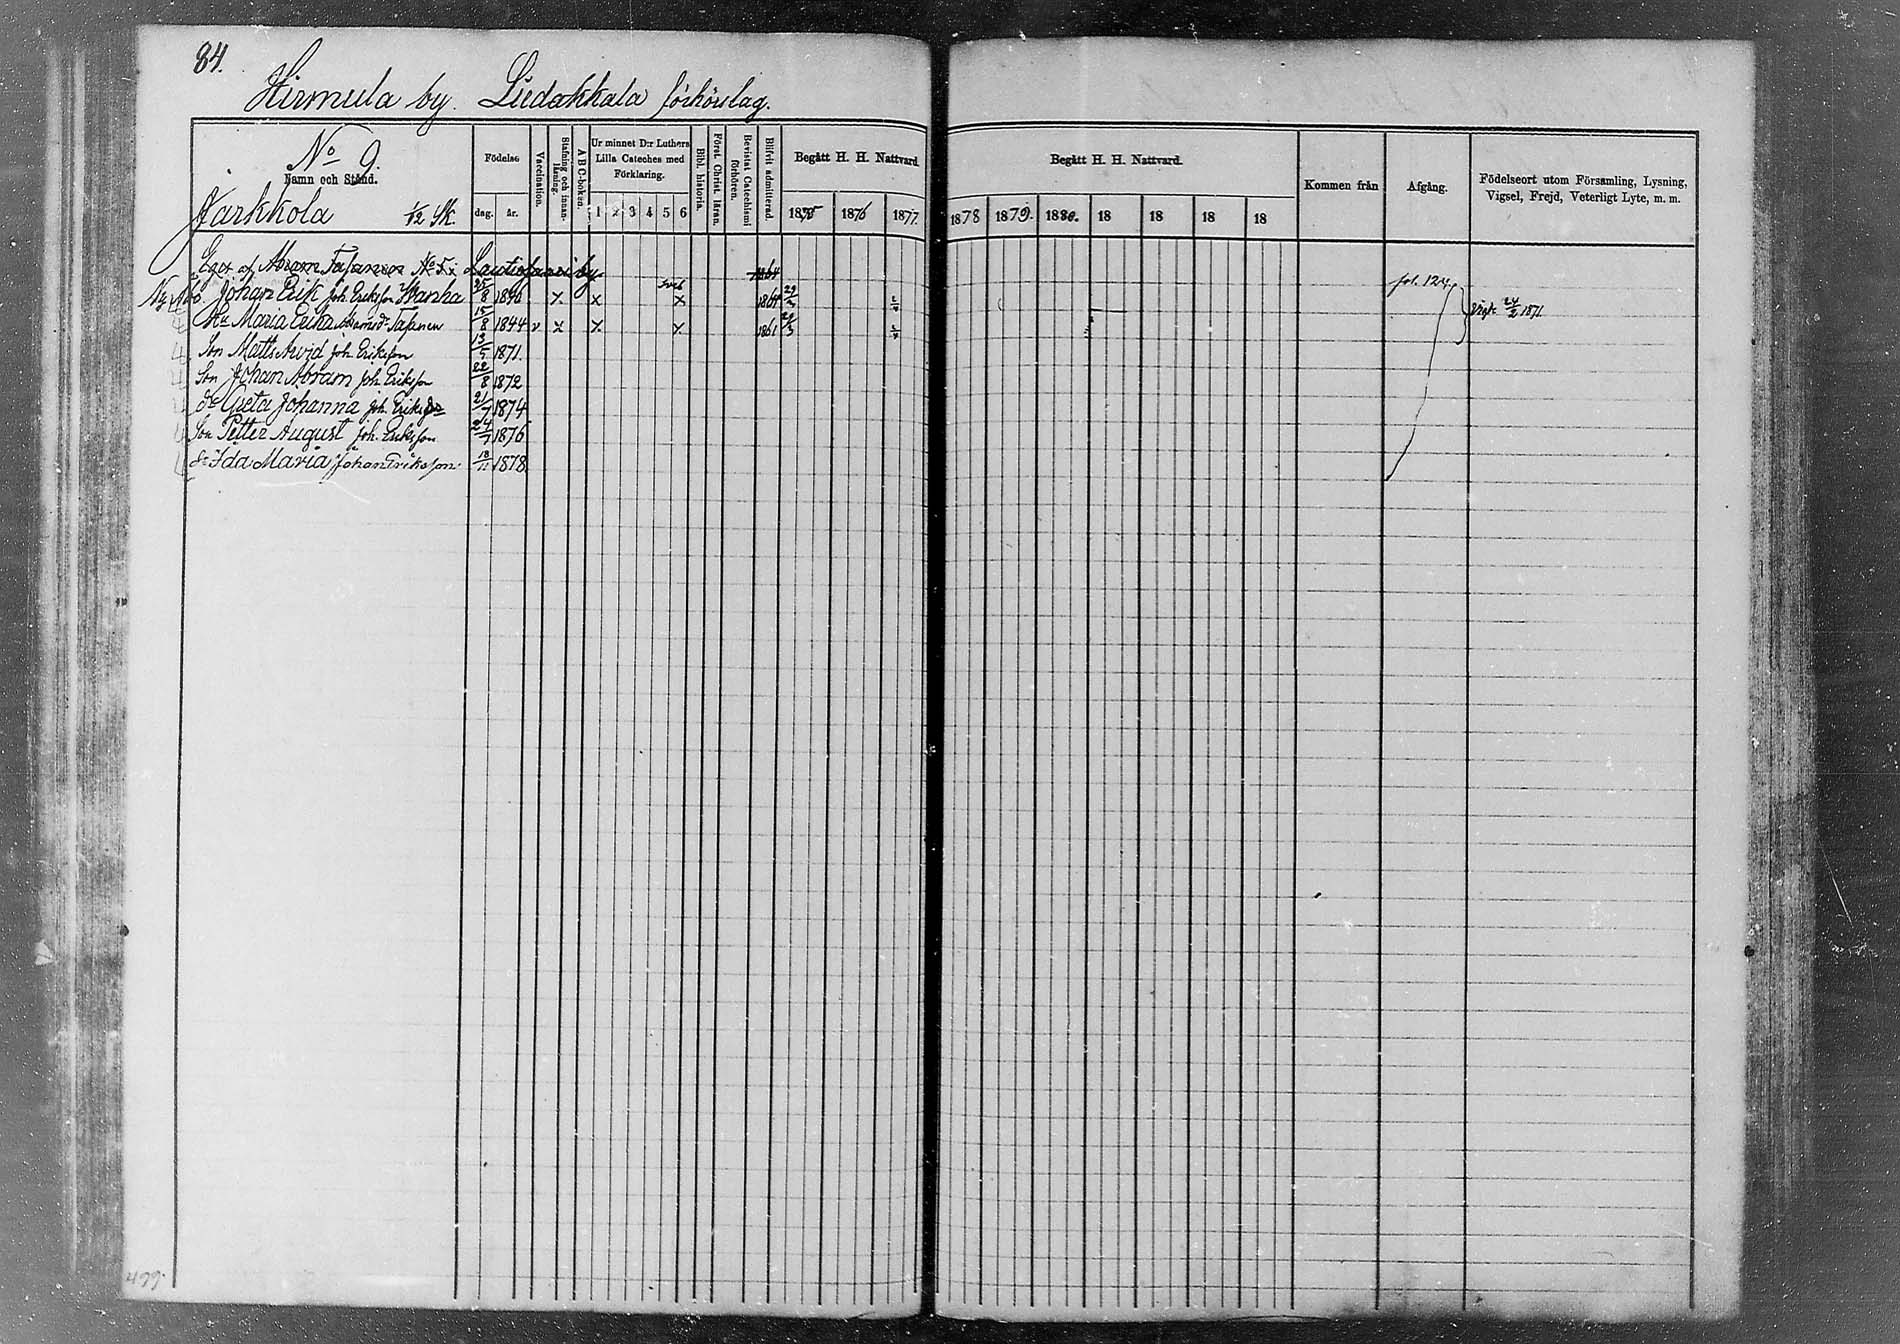 84.
Hirmula by. Liedakkala förhörslag.
No 9.
Namn och Stånd.
Jarkkola 1/12 Mt.
Födelse
dag. år.
Vaccination.
Stafning och innanläsning.
A B C-boken.
Ur minnet D:r Luthers Lilla Cateches med Förklaring.
1 2 3 4 5 6
Bibl. historia.
Först. Christ. läran.
Bevistat Catechismi förhören.
Blifvit admitterad.
Begått H. H. Nattvard.
1875 1876 1877.
Begått H. H. Nattvard.
1878 1879. 1880. 18 18 18 18
Kommen från
Afgång.
Födelseort utom Församling, Lysning, Vigsel, Frejd, Veterligt Lyte, m. m.
Eges af Abram Tapanen No 5. Lautiosaari by
Johan Erik Joh. Eriksson Wanha 25/8 1846 x x x 1864 29/3 fol. 124
Hu Maria Erika Abramsdr Tapanen 15/8 1844 v x x x 1861 29/3 Vigde 24/2 1871
Son Matts Arvid Joh. Eriksson 13/5 1871.
Son Johan Abram Joh. Eriksson 22/8 1872
dr Greta Johanna Joh. Eriksdr 21/7 1874
Son Petter August Joh. Eriksson 24/7 1876
dr Ida Maria Johan Eriksson 18/11 1878
499.